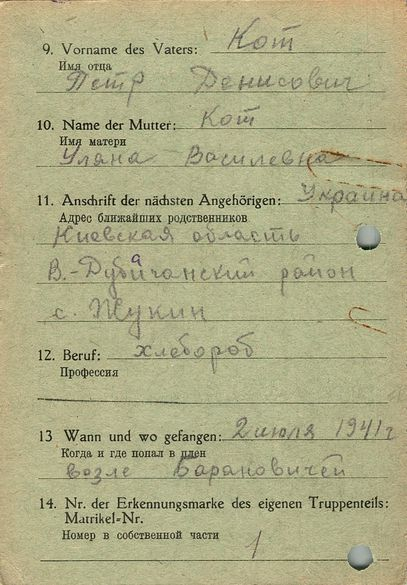 9. Vorname des Vaters: Кот
Имя отца
Петр Денисович
10. Name der Mutter: Кот
Имя матери
Уляна Василевна
11. Anschrift der nächsten Angehörigen: Украина
Адрес ближайших родственников
Киевская область
В.-Дубичанский район
а
с. Жукин
12. Beruf: хлебороб
Профессия
13 Wann und wo gefangen: 2 июля 1941 г
Когда и где попал в плен
возле Барановичей
14. Nr. der Erkennungsmarke des eigenen Truppenteils:
Matrikel-Nr.
Номер в собственной части
1